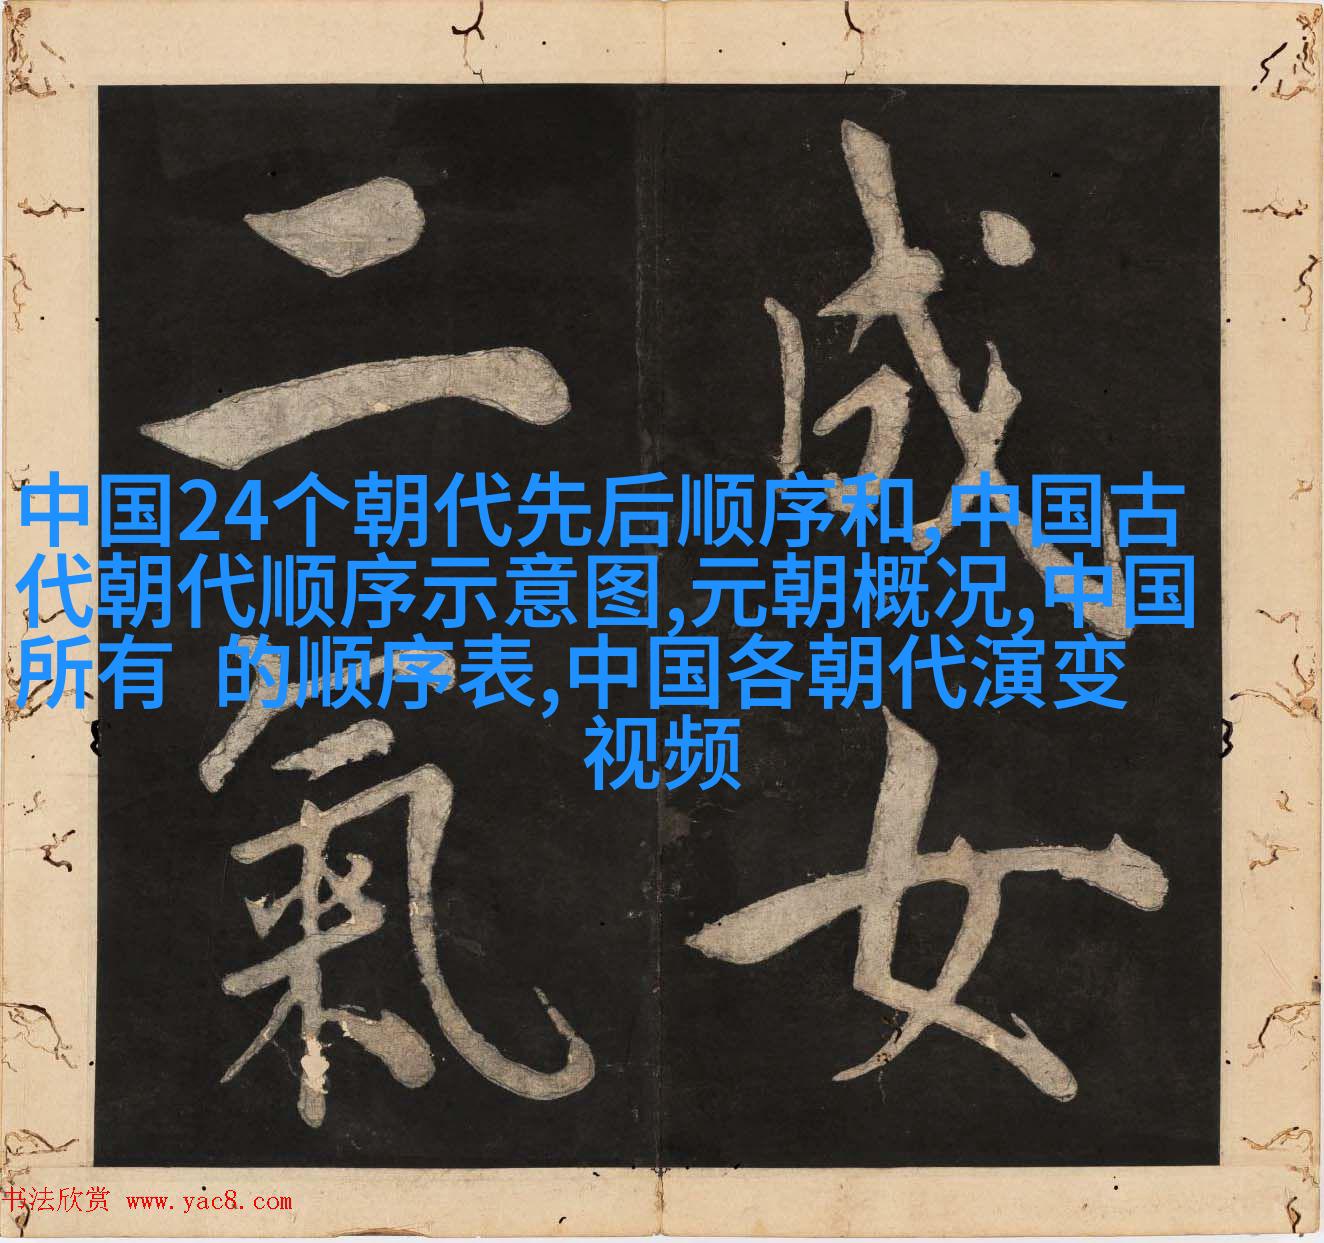 成女
二氣
中国24个朝代先后顺序和,中国古
代朝代顺序示意图,元朝概况,中国
所有 的顺序表,中国各朝代演变
视频
书法欣赏 www.yac8.com